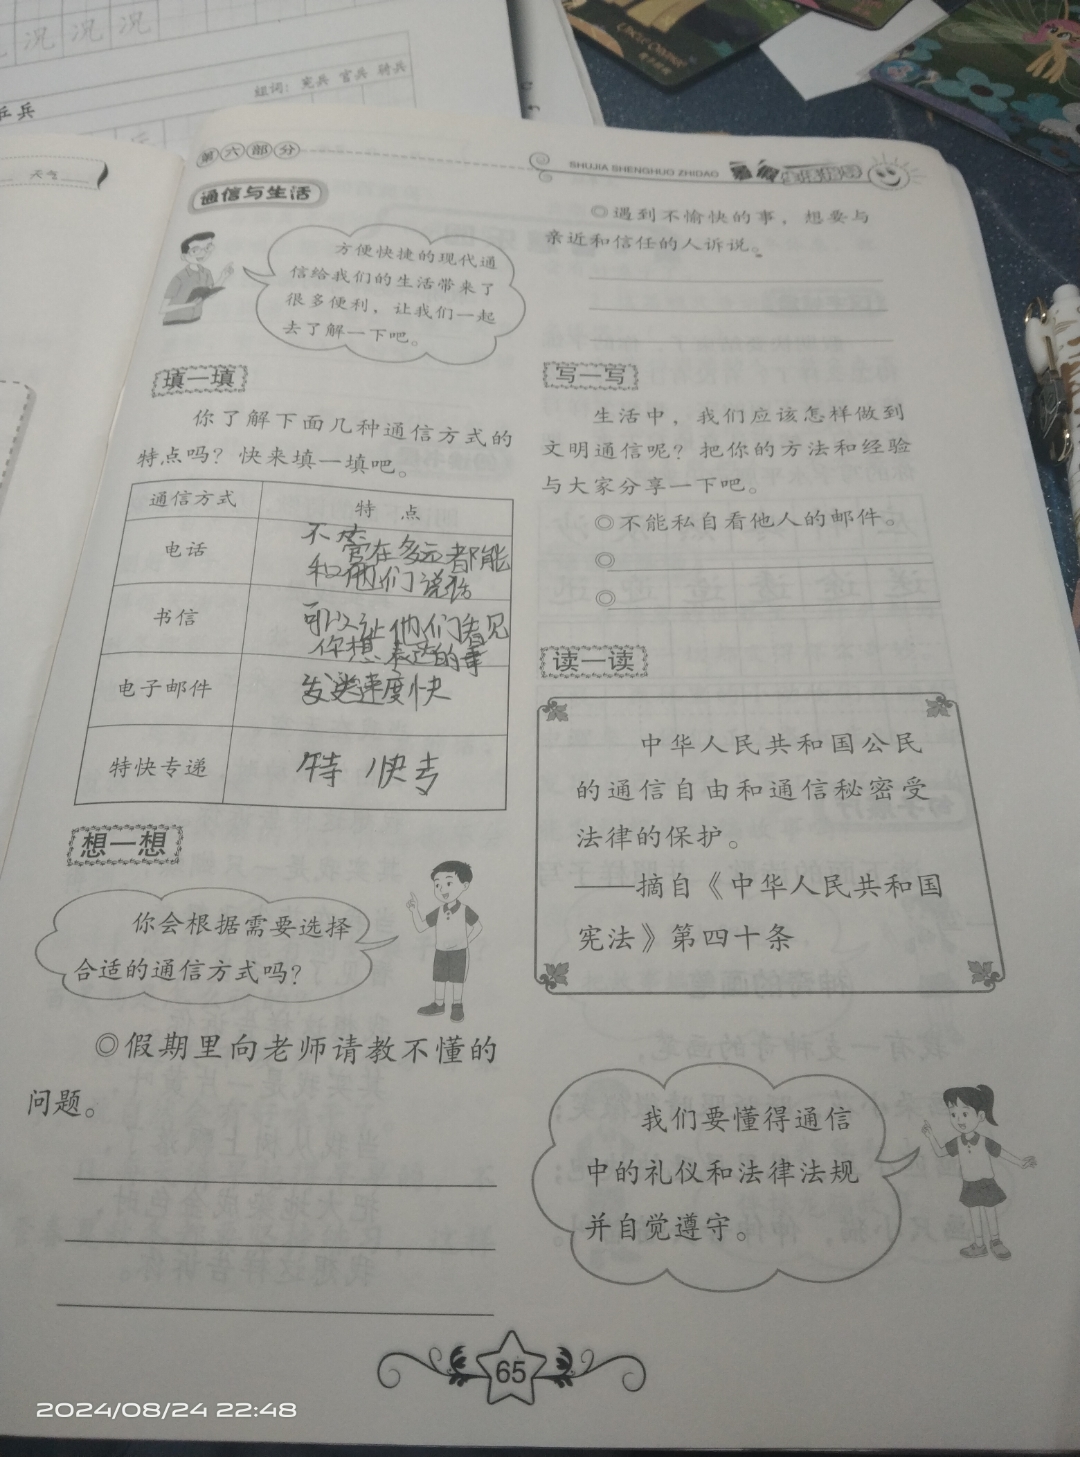 况 况 况
组词：宪兵 官兵 骑兵
乒兵
天气
第六部分
SHUJIA SHENGHUO ZHIDAO
通信与生活
方便快捷的现代通
信给我们的生活带来了
很多便利，让我们一起
去了解一下吧。
填一填
你了解下面几种通信方式的
特点吗？快来填一填吧。
通信方式 特 点
电话
不管在多远都能
和他们说话
书信
可以让他们看见
你想表达的事
电子邮件
发送速度快
特快专递
特 快专
想一想
你会根据需要选择
合适的通信方式吗？
◎假期里向老师请教不懂的
问题。
◎遇到不愉快的事，想要与
亲近和信任的人诉说。
写一写
生活中，我们应该怎样做到
文明通信呢？把你的方法和经验
与大家分享一下吧。
◎不能私自看他人的邮件。
◎
◎
读一读
中华人民共和国公民
的通信自由和通信秘密受
法律的保护。
——摘自《中华人民共和国
宪法》第四十条
我们要懂得通信
中的礼仪和法律法规
并自觉遵守。
65
2024/08/24 22:48